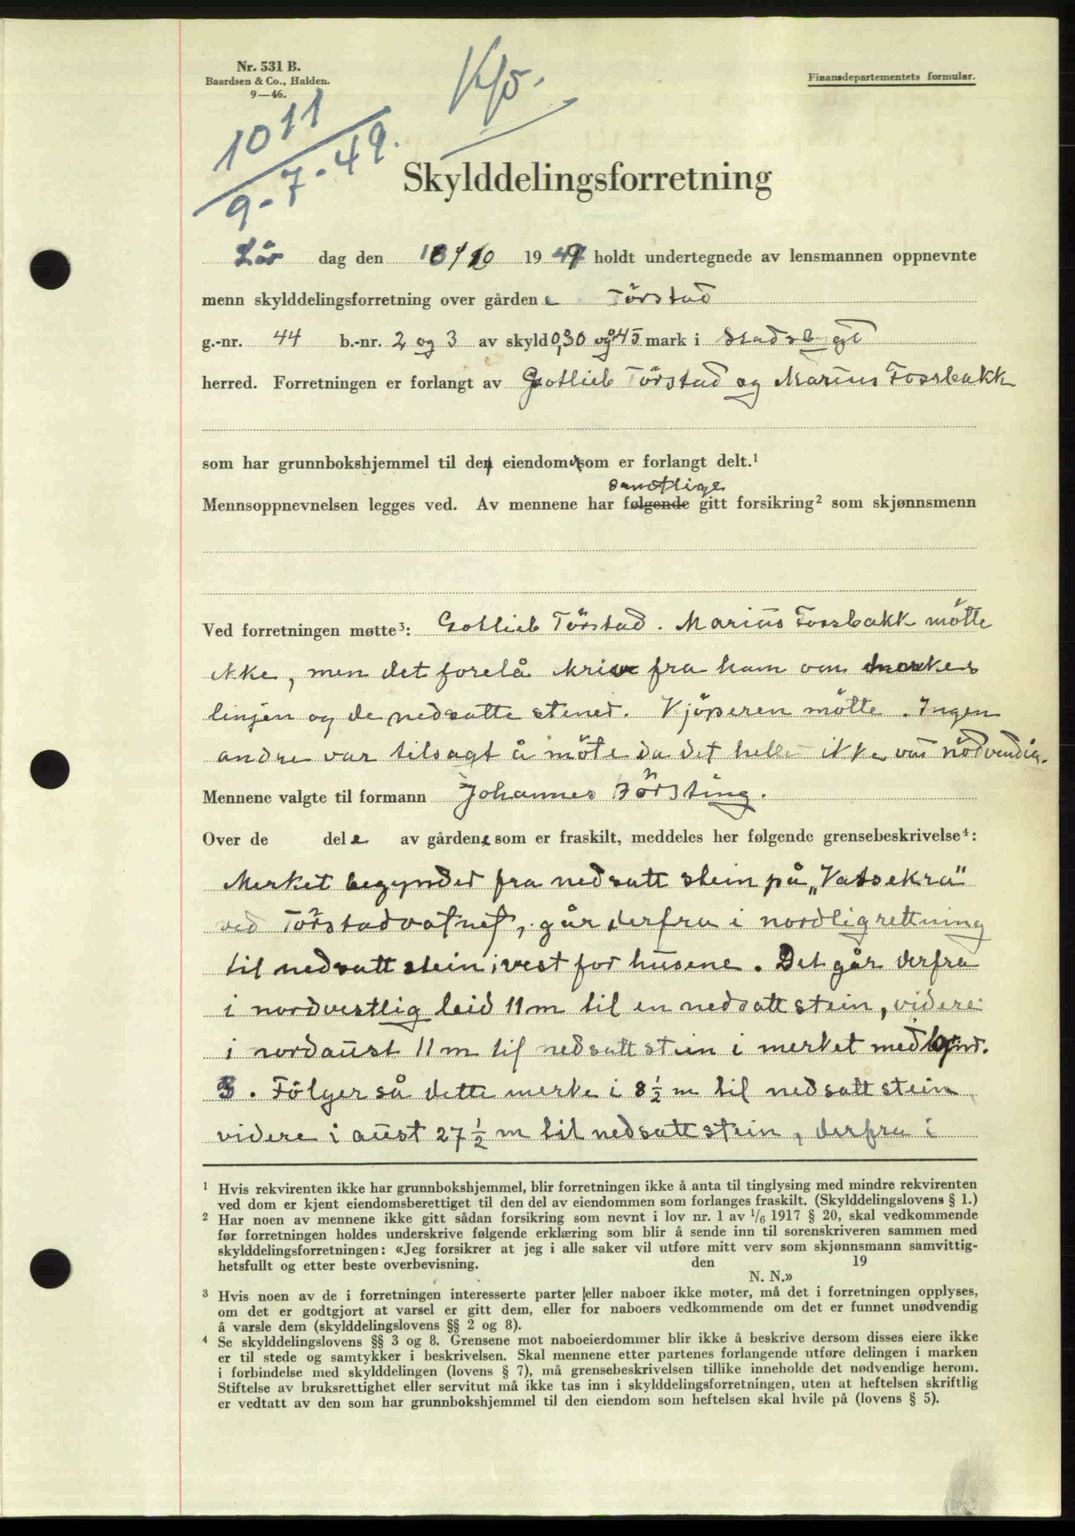 Nr. 531 B.
Baardsen & Co., Halden.
9—46.
Finansdepartementets formular.
1011
9-7-49.
Skylddelingsforretning
Lör dag den 18/10 1947 holdt undertegnede av lensmannen oppnevnte
menn skylddelingsforretning over gårdene Törstad
g.-nr. 44 b.-nr. 2 og 3 av skyld 0,30 og 45 mark i Stadsbygd
herred. Forretningen er forlangt av Gotlieb Törstad og Marius Fossbakk
som har grunnbokshjemmel til den eiendom som er forlangt delt.¹
samtlige
Mennsoppnevnelsen legges ved. Av mennene har følgende gitt forsikring² som skjønnsmenn
Ved forretningen møtte³: Gotlieb Törstad. Marius Fossbakk mötte
ikke, men det forelå skriv fra ham om merkes
linjen og de nedsatte stener. Kjöperen mötte. Ingen
andre var tilsagt å möte da det heller ikke var nödvendig.
Mennene valgte til formann Johannes Törsting.
Over de dele av gårdene som er fraskilt, meddeles her følgende grensebeskrivelse⁴:
Merket begynder fra nedsatt stein på „Vatsekra"
ved Törstadvatnet, går derfra i nordlig rettning
til nedsatt stein i vest for husene. Det går derfra
i nordvestlig leid 11 m til en nedsatt stein, videre
i nordaust 11 m til nedsatt stein i merket med br.nr.
3. Fölger så dette merke i 8 ½ m til nedsatt stein
videre i aust 27 ½ m til nedsatt stein, derfra i
¹ Hvis rekvirenten ikke har grunnbokshjemmel, blir forretningen ikke å anta til tinglysing med mindre rekvirenten
ved dom er kjent eiendomsberettiget til den del av eiendommen som forlanges fraskilt. (Skylddelingslovens § 1.)
² Har noen av mennene ikke gitt sådan forsikring som nevnt i lov nr. 1 av ¹/₆ 1917 § 20, skal vedkommende
før forretningen holdes underskrive følgende erklæring som blir å sende inn til sorenskriveren sammen med
skylddelingsforretningen: «Jeg forsikrer at jeg i alle saker vil utføre mitt verv som skjønnsmann samvittig-
hetsfullt og etter beste overbevisning. den 19
N. N.»
³ Hvis noen av de i forretningen interesserte parter eller naboer ikke møter, må det i forretningen opplyses,
om det er godtgjort at varsel er gitt dem, eller for naboers vedkommende om det er funnet unødvendig
å varsle dem (skylddelingslovens §§ 2 og 8).
⁴ Se skylddelingslovens §§ 3 og 8. Grensene mot naboeierdommer blir ikke å beskrive dersom disses eiere ikke
er til stede og samtykker i beskrivelsen. Skal mennene etter partenes forlangende utføre delingen i marken
i forbindelse med skylddelingen (lovens § 7), må grensebeskrivelsen tillike inneholde det nødvendige herom.
Stiftelse av bruksrettighet eller servitut må ikke tas inn i skylddelingsforretningen, uten at heftelsen skriftlig
er vedtatt av den som har grunnbokshjemmel til den eiendom som heftelsen skal hvile på (lovens § 5).